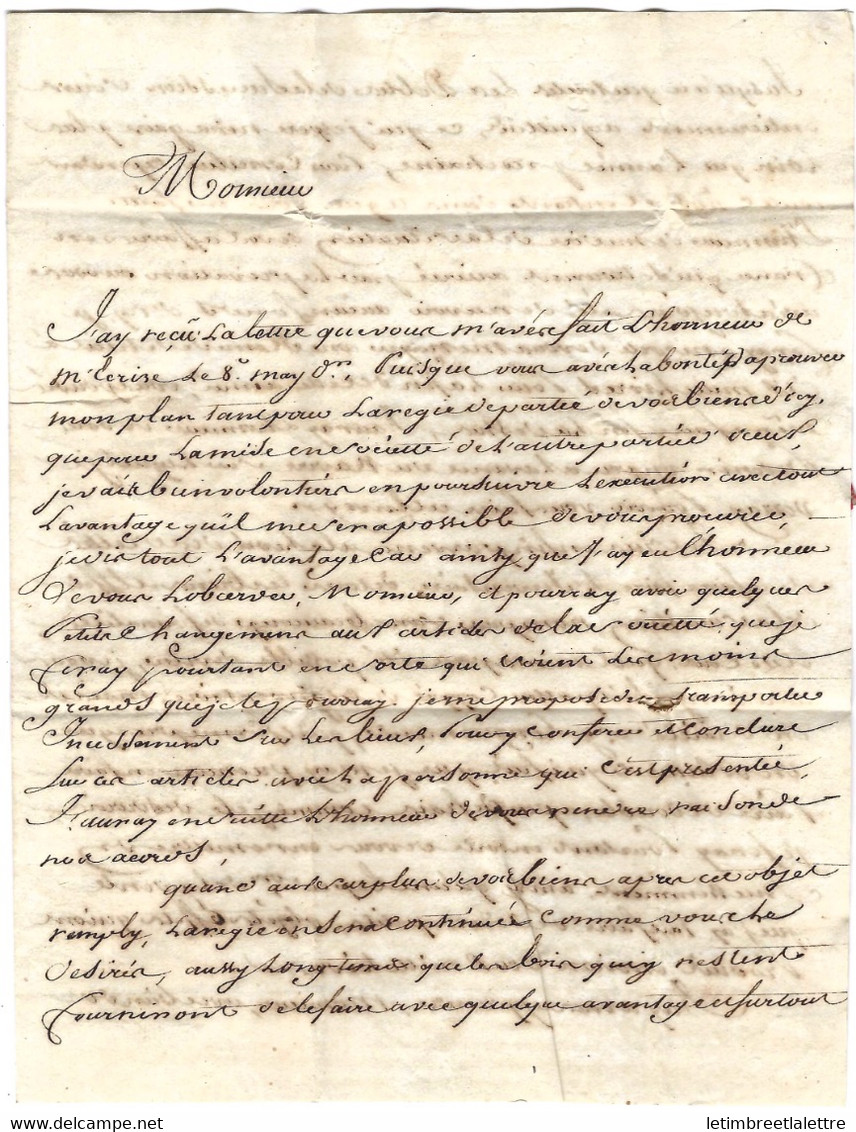 Monsieur
J'ay reçu La lettre que vous m'avés fait L'honneur de
m'Ecrire Le 8e. may dr., Puisque vous avés La bonté D'aprouver
mon plan tant pour La regie de partie de vos biens d'icy,
que pour La mise en societté de L'autre partie d'eux,
je vais bien volontiers en poursuivre L'execution avec tout
L'avantage qu'il me sera possible de vous procurer,
je dis tout L'avantage Car ainsy que J'ay eu L'honneur
de vous L'observer, Monsieur, il pourray avoir quelques
Petits Changemens aux articles de la societté que je
feray pourtant en sorte qui soient Les moins
grands que je Le pouray. je me propose de me transporter
Incessament sur Les lieux, Pour y conferer et Conclure
sur ces articles avec La personne qui c'est presentée,
J'auray en suitte L'honneur de vous rendre raison de
nos acords,
quand au surplus de vos biens apres cet objet
remply, La regie en sera Continuée comme vous Le
desirés, aussy Longtems que les bois quy restent
fourniront de le faire avec quelque avantage et surtout
delcampe.net
letimbreetlalettre